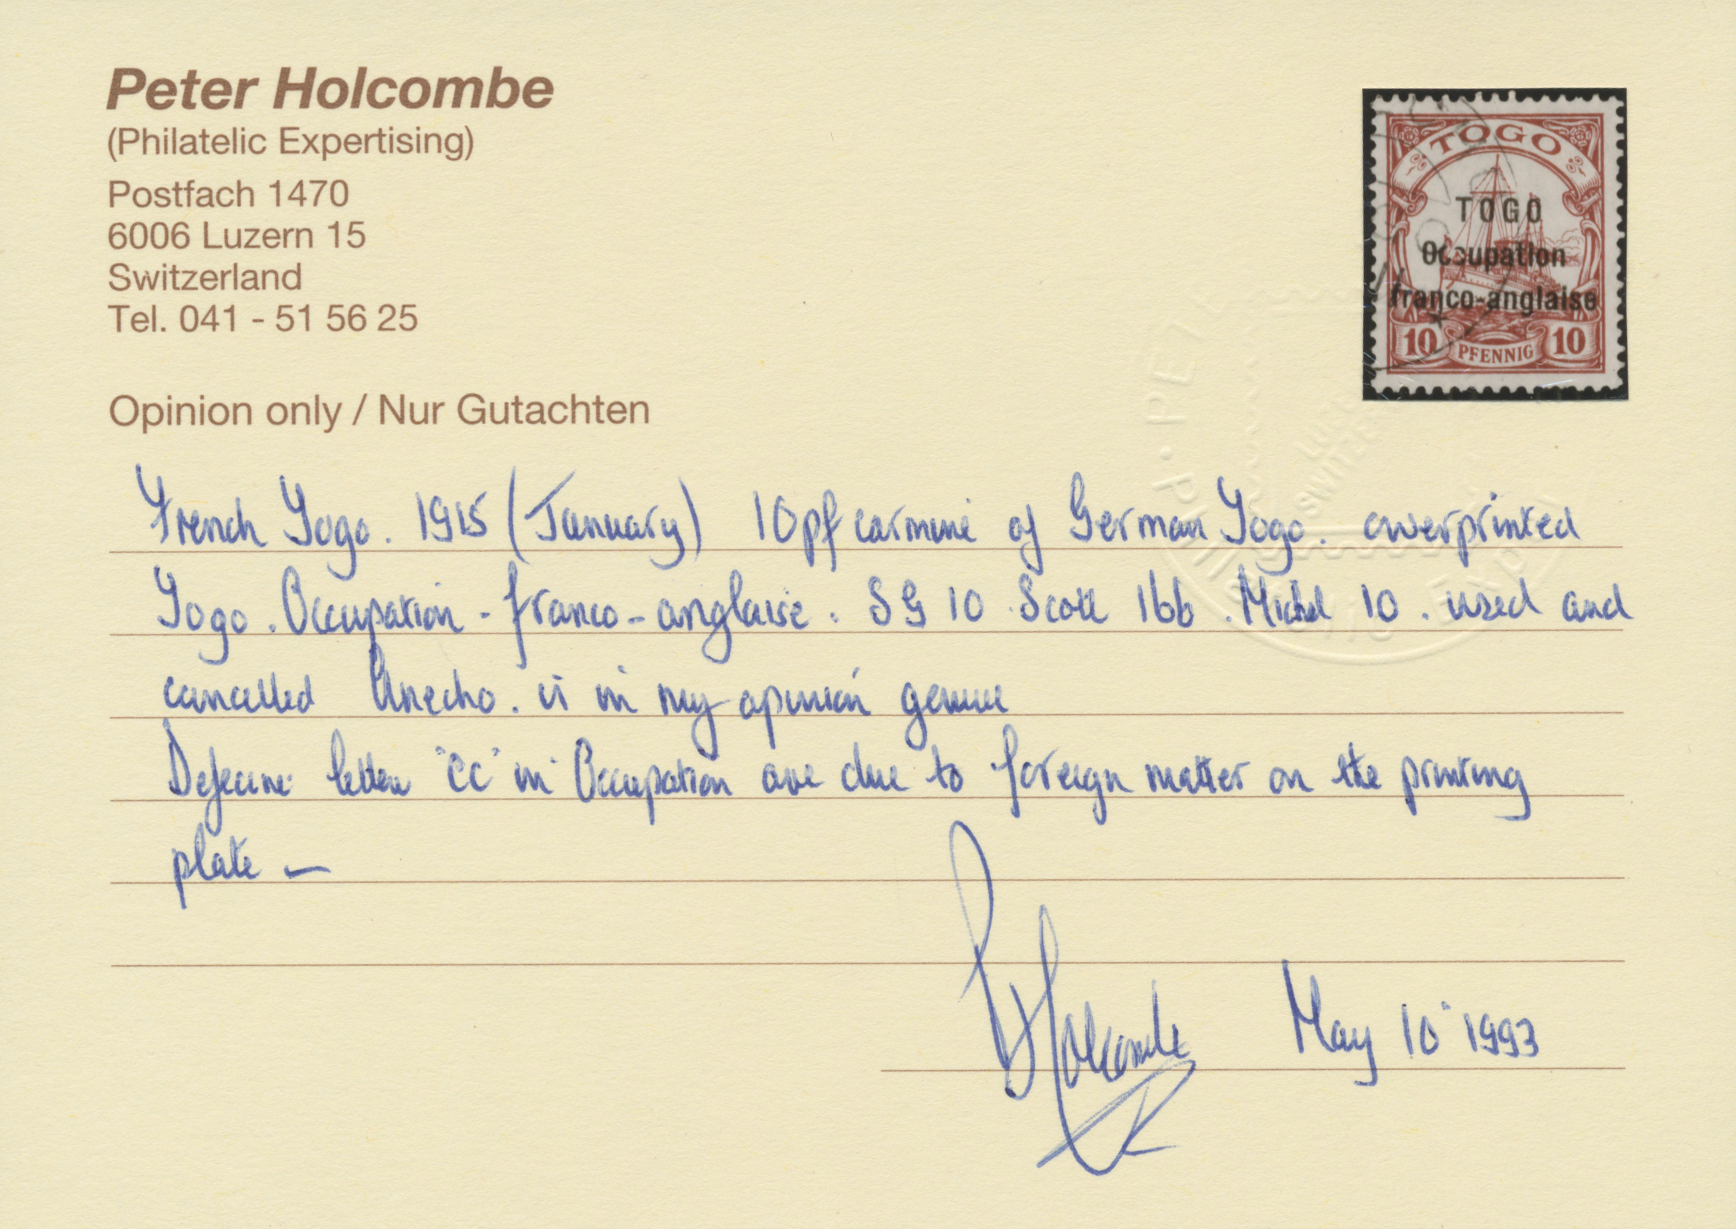 Peter Holcombe
(Philatelic Expertising)
Postfach 1470
6006 Luzern 15
Switzerland
Tel. 041 - 51 56 25
Opinion only / Nur Gutachten
TOGO
TOGO
Occupation
franco-anglaise
10 PFENNIG 10
French Togo. 1915 (January) 10pf carmine of German Togo. overprinted
Togo. Occupation - franco-anglaise. SG 10 Scott 166. Michel 10. used and
cancelled Anecho. is in my opinion genuine
Defective letters "CC" in Occupation are due to foreign matter on the printing
plate —
PHolcombe May 10 1993